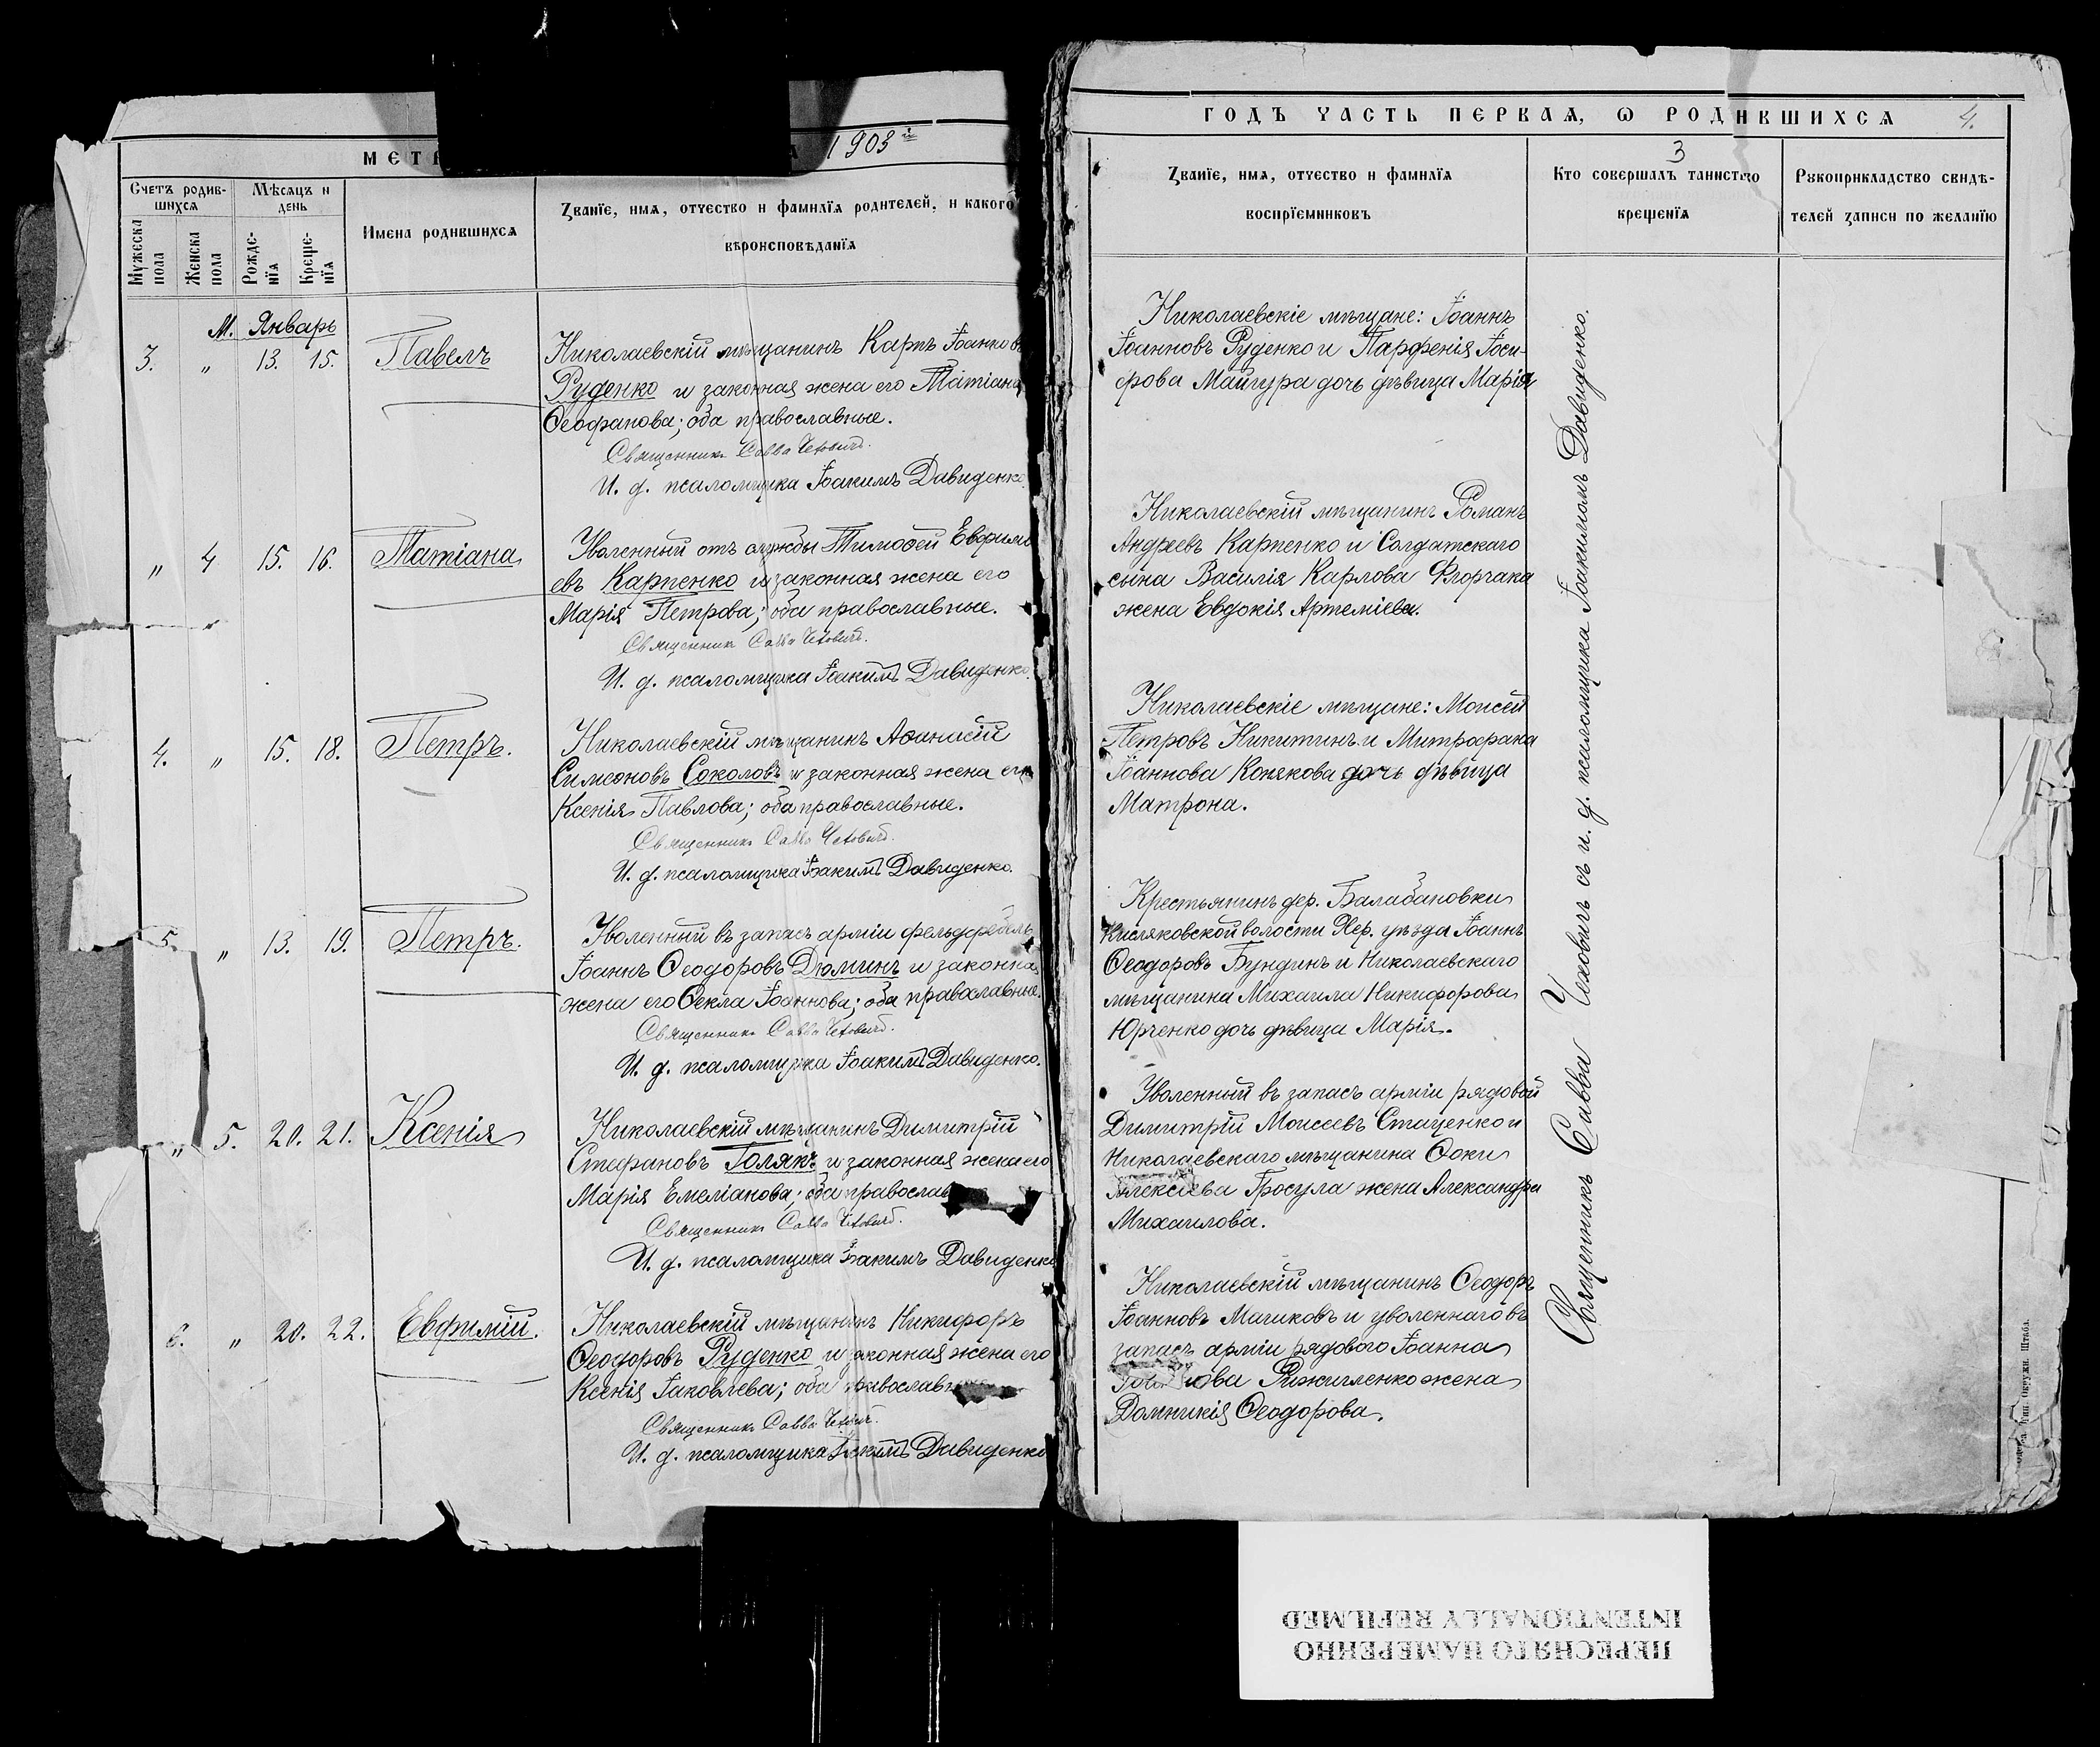 1903й
ГОДЪ ЧАСТЬ ПЕРВАЯ, Ѡ РОДИВШИХСЯ
4.
3
Счетъ родив-
шихся
Мѣсяцъ и
день
Мужеска
пола
Женска
пола
Рожде-
нїя
Креще-
нїя
Имена родившихся
Званїе, имя, отчество и фамилїя родителей, и какого
вѣроисповѣданїя
Званїе, имя, отчество и фамилїя
воспрїемниковъ
Кто совершалъ таинство
крещенїя
Рукоприкладство свидѣ-
телей записи по желанїю
М. Январь
3. „ 13. 15. Павелъ
Николаевскій мѣщанинъ Карпъ Іоанновъ
Руденко и законная жена его Татіана
Ѳеофанова; оба православные.
Священникъ Савва Чеховичъ.
И. д. псаломщика Іоакимъ Давиденко.
Николаевскіе мѣщане: Іоаннъ
Іоанновъ Руденко и Парфенія Іоси-
фова Майгура дочь дѣвица Марія
„ 4 15. 16. Татіана
Уволенный отъ службы Тимоѳей Евфимі
евъ Карпенко и законная жена его
Марія Петрова; оба православные.
Священникъ Савва Чеховичъ.
И. д. псаломщика Іоакимъ Давиденко.
Николаевскій мѣщанинъ Романъ
Андреевъ Карпенко и Солдатскаго
сына Василія Карлова Флорчака
жена Евдокія Артеміева.
4. „ 15. 18. Петръ.
Николаевскій мѣщанинъ Аѳанасій
Симеоновъ Соколовъ и законная жена его
Ксенія Павлова; оба православные.
Священникъ Савва Чеховичъ.
И. д. псаломщика Іоакимъ Давиденко.
Николаевскіе мѣщане: Моисей
Петровъ Никитинъ и Митрофана
Іоаннова Конякова дочь дѣвица
Матрона.
5. „ 13. 19. Петръ.
Уволенный въ запасъ арміи фельдфебель
Іоаннъ Ѳеодоровъ Дюминъ и законная
жена его Ѳекла Іоаннова; оба православные.
Священникъ Савва Чеховичъ.
И. д. псаломщика Іоакимъ Давиденко.
Крестьянинъ дер. Балабановки
Кисляковской волости Хер. уѣзда Іоаннъ
Ѳеодоровъ Бундинъ и Николаевскаго
мѣщанина Михаила Никифорова
Юрченко дочь дѣвица Марія.
„ 5. 20. 21. Ксенія
Николаевскій мѣщанинъ Димитрій
Стефановъ Голякъ и законная жена его
Марія Емеліанова; оба православ
Священникъ Савва Чеховичъ.
И. д. псаломщика Іоакимъ Давиденко
Уволенный въ запасъ арміи рядовой
Димитрій Моисеевъ Стаценко и
Николаевскаго мѣщанина Ѳоки
Алексіева Гросула жена Александра
Михаилова.
6. „ 20. 22. Евфимій.
Николаевскій мѣщанинъ Никифоръ
Ѳеодоровъ Руденко и законная жена его
Ксенія Іаковлева; оба православн
Священникъ Савва Чеховичъ.
И. д. псаломщика Іоакимъ Давиденко
Николаевскій мѣщанинъ Ѳеодоръ
Іоанновъ Машковъ и уволеннаго въ
запасъ арміи рядового Іоанна
Рижиленко жена
Домникія Ѳеодорова.
Священникъ Савва Чеховичъ съ и. д. псаломщика Іоакимомъ Давиденко.
Тип. Окружн. Штаба.
ПЕРЕСНЯТО НАМЕРЕННО
INTENTIONALLY REFILMED